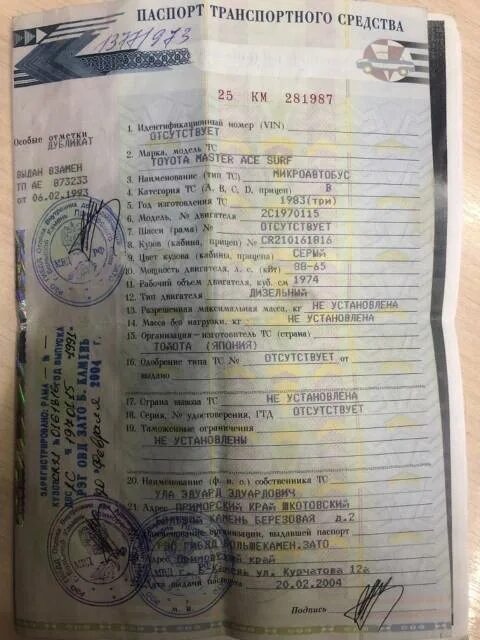 ПАСПОРТ ТРАНСПОРТНОГО СРЕДСТВА
1377/973
25 КМ 281987
Особые отметки
ДУБЛИКАТ
ВЫДАН ВЗАМЕН
ТП АЕ 873233
от 06.02.1993
1. Идентификационный номер (VIN)
ОТСУТСТВУЕТ
2. Марка, модель ТС
TOYOTA MASTER ACE SURF
3. Наименование (тип ТС) МИКРОАВТОБУС
4. Категория ТС (A, B, C, D, прицеп) B
5. Год изготовления ТС 1983(три)
6. Модель, № двигателя 2C1970115
7. Шасси (рама) № ОТСУТСТВУЕТ
8. Кузов (кабина, прицеп) № CR210161816
9. Цвет кузова (кабины, прицепа) СЕРЫЙ
10. Мощность двигателя, л. с. (кВт) 88-65
11. Рабочий объем двигателя, куб. см 1974
12. Тип двигателя ДИЗЕЛЬНЫЙ
13. Разрешенная максимальная масса, кг НЕ УСТАНОВЛЕНА
14. Масса без нагрузки, кг НЕ УСТАНОВЛЕНА
15. Организация-изготовитель ТС (страна)
ТОЙОТА (ЯПОНИЯ)
16. Одобрение типа ТС № ОТСУТСТВУЕТ от
выдано
17. Страна вывоза ТС НЕ УСТАНОВЛЕНА
18. Серия, № удостоверения, ГТД ОТСУТСТВУЕТ
19. Таможенные ограничения
НЕ УСТАНОВЛЕНЫ
20. Наименование (ф. и. о.) собственника ТС
УЛА ЭДУАРД ЭДУАРДОВИЧ
21. Адрес ПРИМОРСКИЙ КРАЙ ШКОТОВСКИЙ
БОЛЬШОЙ КАМЕНЬ БЕРЕЗОВАЯ д.2
Наименование организации, выдавшей паспорт
РЭО ГИБДД БОЛЬШЕКАМЕН.ЗАТО
Адрес Приморский край
г. Б. Камень ул. Курчатова 12а
Дата выдачи паспорта 20.02.2004
М. П.
Подпись
ЗАРЕГИСТРИРОВАНО: РАМА
РЭГ ОВД ЗАТО Б. КАМЕНЬ
20 февраля 2004 г.